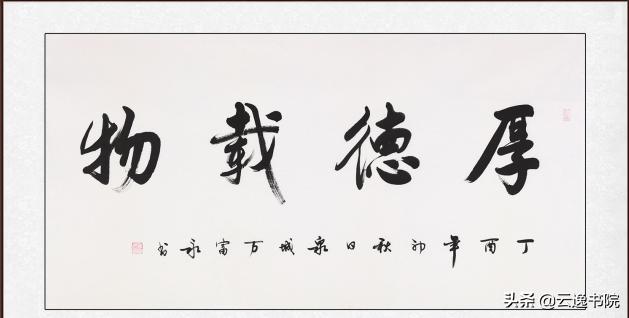 厚德載物
丁酉年初秋日泉城万富永书
头条 @云逸书院